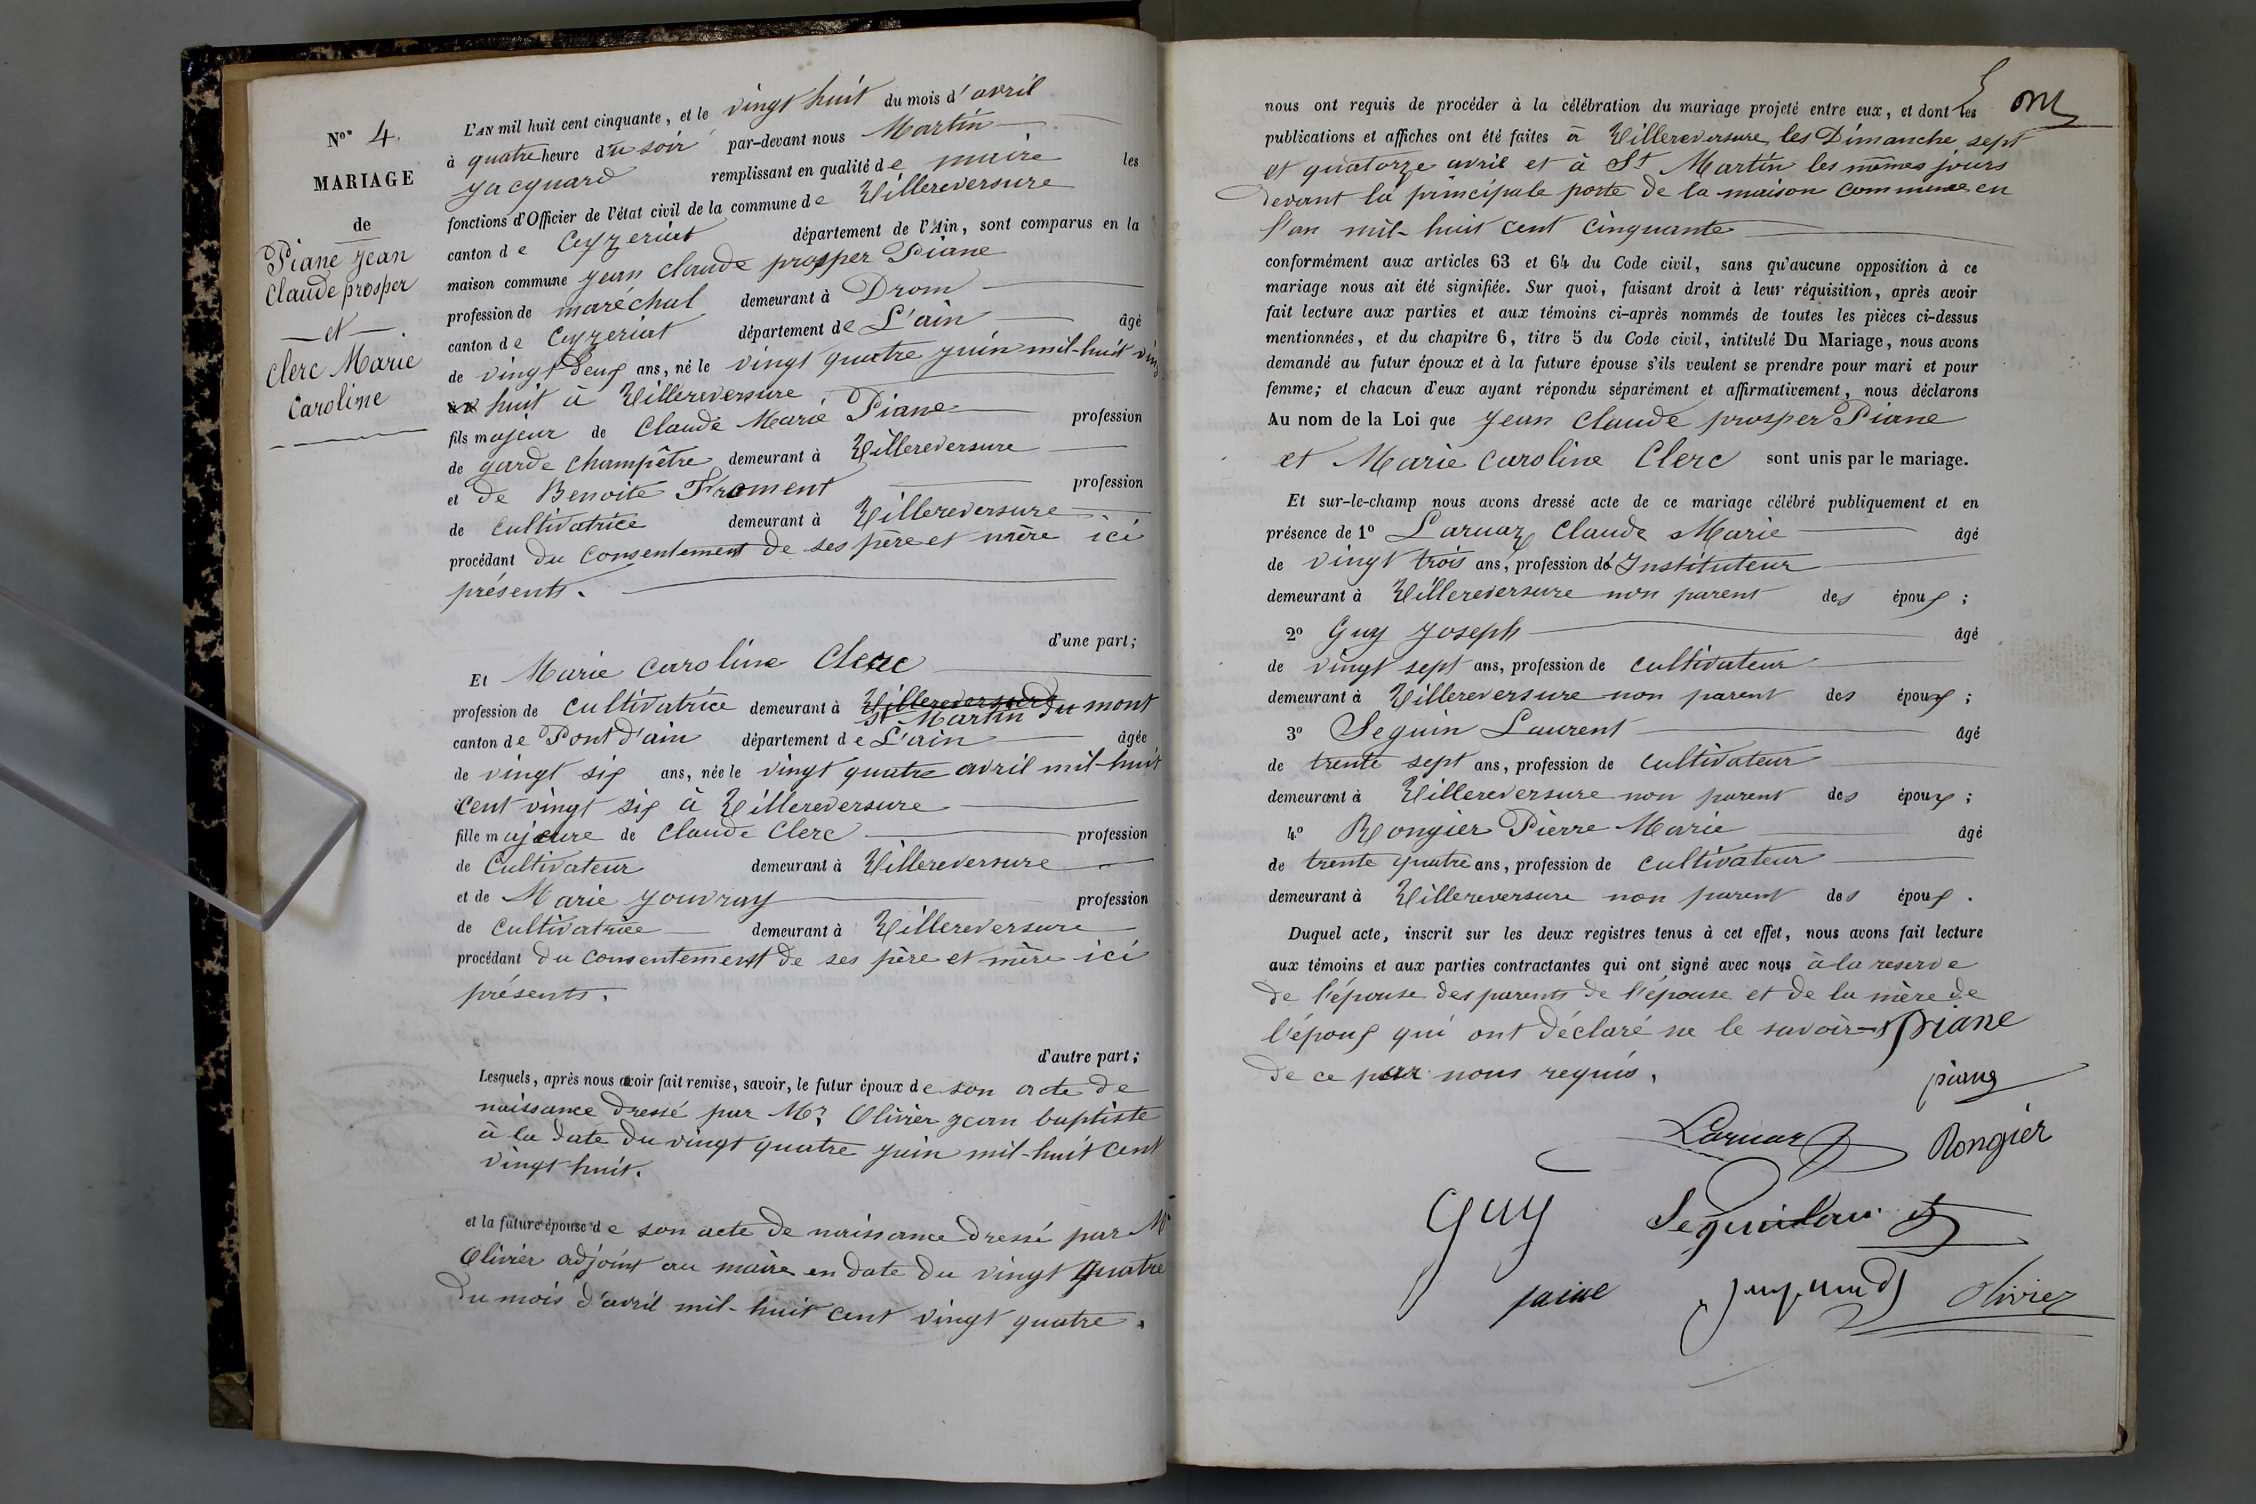 Nos 4.
MARIAGE
de
Piane Jean
Claude prosper
et
Clerc Marie
Caroline
L'AN mil huit cent cinquante, et le vingt huit du mois d'avril
à quatre heure du soir par-devant nous Martin
Jacquand remplissant en qualité de maire les
fonctions d'Officier de l'état civil de la commune de Villereversure
canton de Ceyzeriat département de l'Ain, sont comparus en la
maison commune Jean Claude prosper Piane
profession de maréchal demeurant à Drom
canton de Ceyzeriat département de L'ain âgé
de vingt deux ans, né le vingt quatre juin mil-huit vingt
huit à Villereversure
fils majeur de Claude Marie Piane profession
de garde Champêtre demeurant à Villereversure
et de Benoite Froment profession
de cultivatrice demeurant à Villereversure
procédant du consentement de ses père et mère ici
présents.
d'une part;
Et Marie Caroline Clerc
profession de cultivatrice demeurant à Villereversure
st Martin du mont
canton de Pont d'ain département de L'ain âgée
de vingt six ans, née le vingt quatre avril mil-huit
cent vingt six à Villereversure
fille majeure de Claude Clerc profession
de Cultivateur demeurant à Villereversure
et de Marie Jouvray profession
de cultivatrice demeurant à Villereversure
procédant du consentement de ses père et mère ici
présents.
d'autre part;
Lesquels, après nous avoir fait remise, savoir, le futur époux de son acte de
naissance dressé par Mr Olivier jean baptiste
à la date du vingt quatre juin mil-huit cent
vingt huit.
et la future épouse de son acte de naissance dressé par Mr
Olivier adjoint au maire en date du vingt quatre
du mois d'avril mil-huit cent vingt quatre.
nous ont requis de procéder à la célébration du mariage projeté entre eux, et dont les
publications et affiches ont été faites à Villereversure les Dimanche sept
et quatorze avril et à St Martin les mêmes jours
devant la principale porte de la maison commune en
l'an mil-huit cent cinquante
conformément aux articles 63 et 64 du Code civil, sans qu'aucune opposition à ce
mariage nous ait été signifiée. Sur quoi, faisant droit à leur réquisition, après avoir
fait lecture aux parties et aux témoins ci-après nommés de toutes les pièces ci-dessus
mentionnées, et du chapitre 6, titre 5 du Code civil, intitulé Du Mariage, nous avons
demandé au futur époux et à la future épouse s'ils veulent se prendre pour mari et pour
femme; et chacun d'eux ayant répondu séparément et affirmativement, nous déclarons
Au nom de la Loi que Jean Claude prosper Piane
et Marie Caroline Clerc sont unis par le mariage.
Et sur-le-champ nous avons dressé acte de ce mariage célébré publiquement et en
présence de 1º Laruaz Claude Marie âgé
de vingt trois ans, profession d'Instituteur
demeurant à Villereversure non parent des époux;
2º Guy Joseph âgé
de vingt sept ans, profession de cultivateur
demeurant à Villereversure non parent des époux;
3º Seguin Laurent âgé
de trente sept ans, profession de cultivateur
demeurant à Villereversure non parent des époux;
4º Rongier Pierre Marie âgé
de trente quatre ans, profession de cultivateur
demeurant à Villereversure non parent des époux.
Duquel acte, inscrit sur les deux registres tenus à cet effet, nous avons fait lecture
aux témoins et aux parties contractantes qui ont signé avec nous à la reserve
de l'épouse des parents de l'épouse et de la mère de
l'époux qui ont déclaré ne le savoir Piane
de ce par nous requis.
piane
Laruaz Rongier
Guy Seguin
Olivier